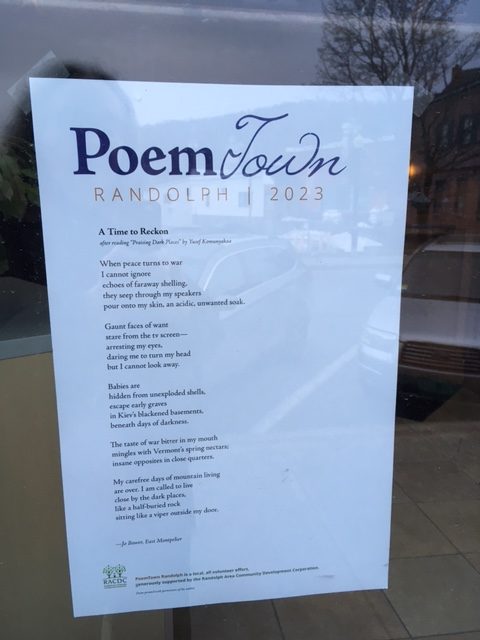 PoemTown
RANDOLPH | 2023
A Time to Reckon
after reading "Praising Dark Places" by Yusef Komunyakaa
When peace turns to war
I cannot ignore
echoes of faraway shelling,
they seep through my speakers
pour onto my skin, an acidic, unwanted soak.
Gaunt faces of want
stare from the tv screen—
arresting my eyes,
daring me to turn my head
but I cannot look away.
Babies are
hidden from unexploded shells,
escape early graves
in Kiev's blackened basements,
beneath days of darkness.
The taste of war bitter in my mouth
mingles with Vermont's spring nectars;
insane opposites in close quarters.
My carefree days of mountain living
are over. I am called to live
close by the dark places,
like a half-buried rock
sitting like a viper outside my door.
—Jo Bower, East Montpelier
RACDC
PoemTown Randolph is a local, all volunteer effort,
generously supported by the Randolph Area Community Development Corporation.